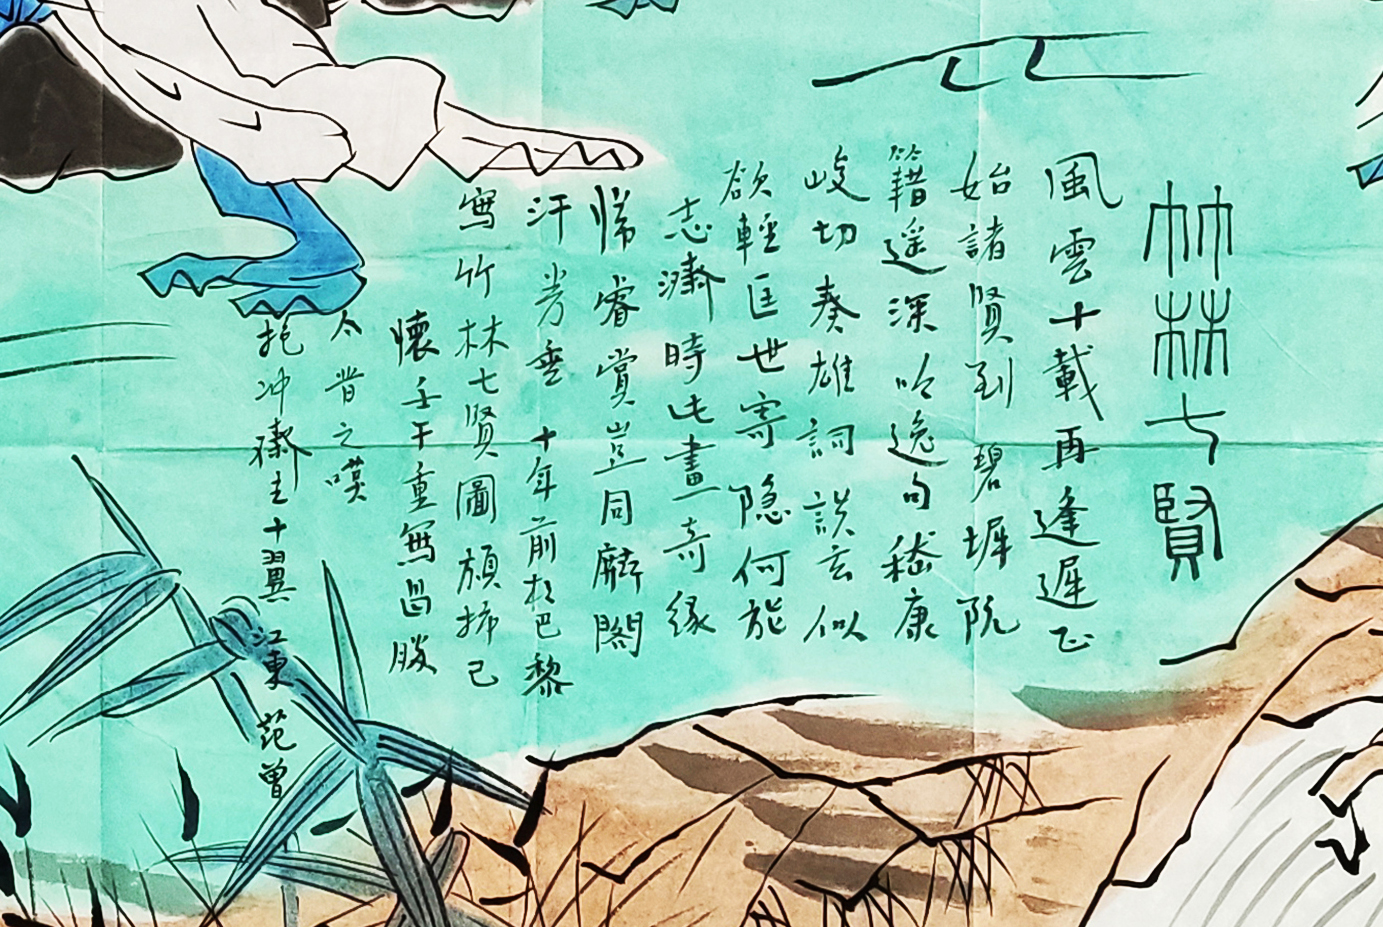 竹林七賢
風雲十載再逢遲正
始諸贤到碧墀阮
籍遥深吟逸句嵇康
峻切奏雄詞談玄似
欲輕匡世寄隐何能
志濟時此畫奇缘
睿賞豈同麟閣
汗 垂 十年前於巴黎
寫竹林七贤圖頎 己
懷壬午重無 勝
今昔之嘆
抱冲齋主十翼 江東 范曾